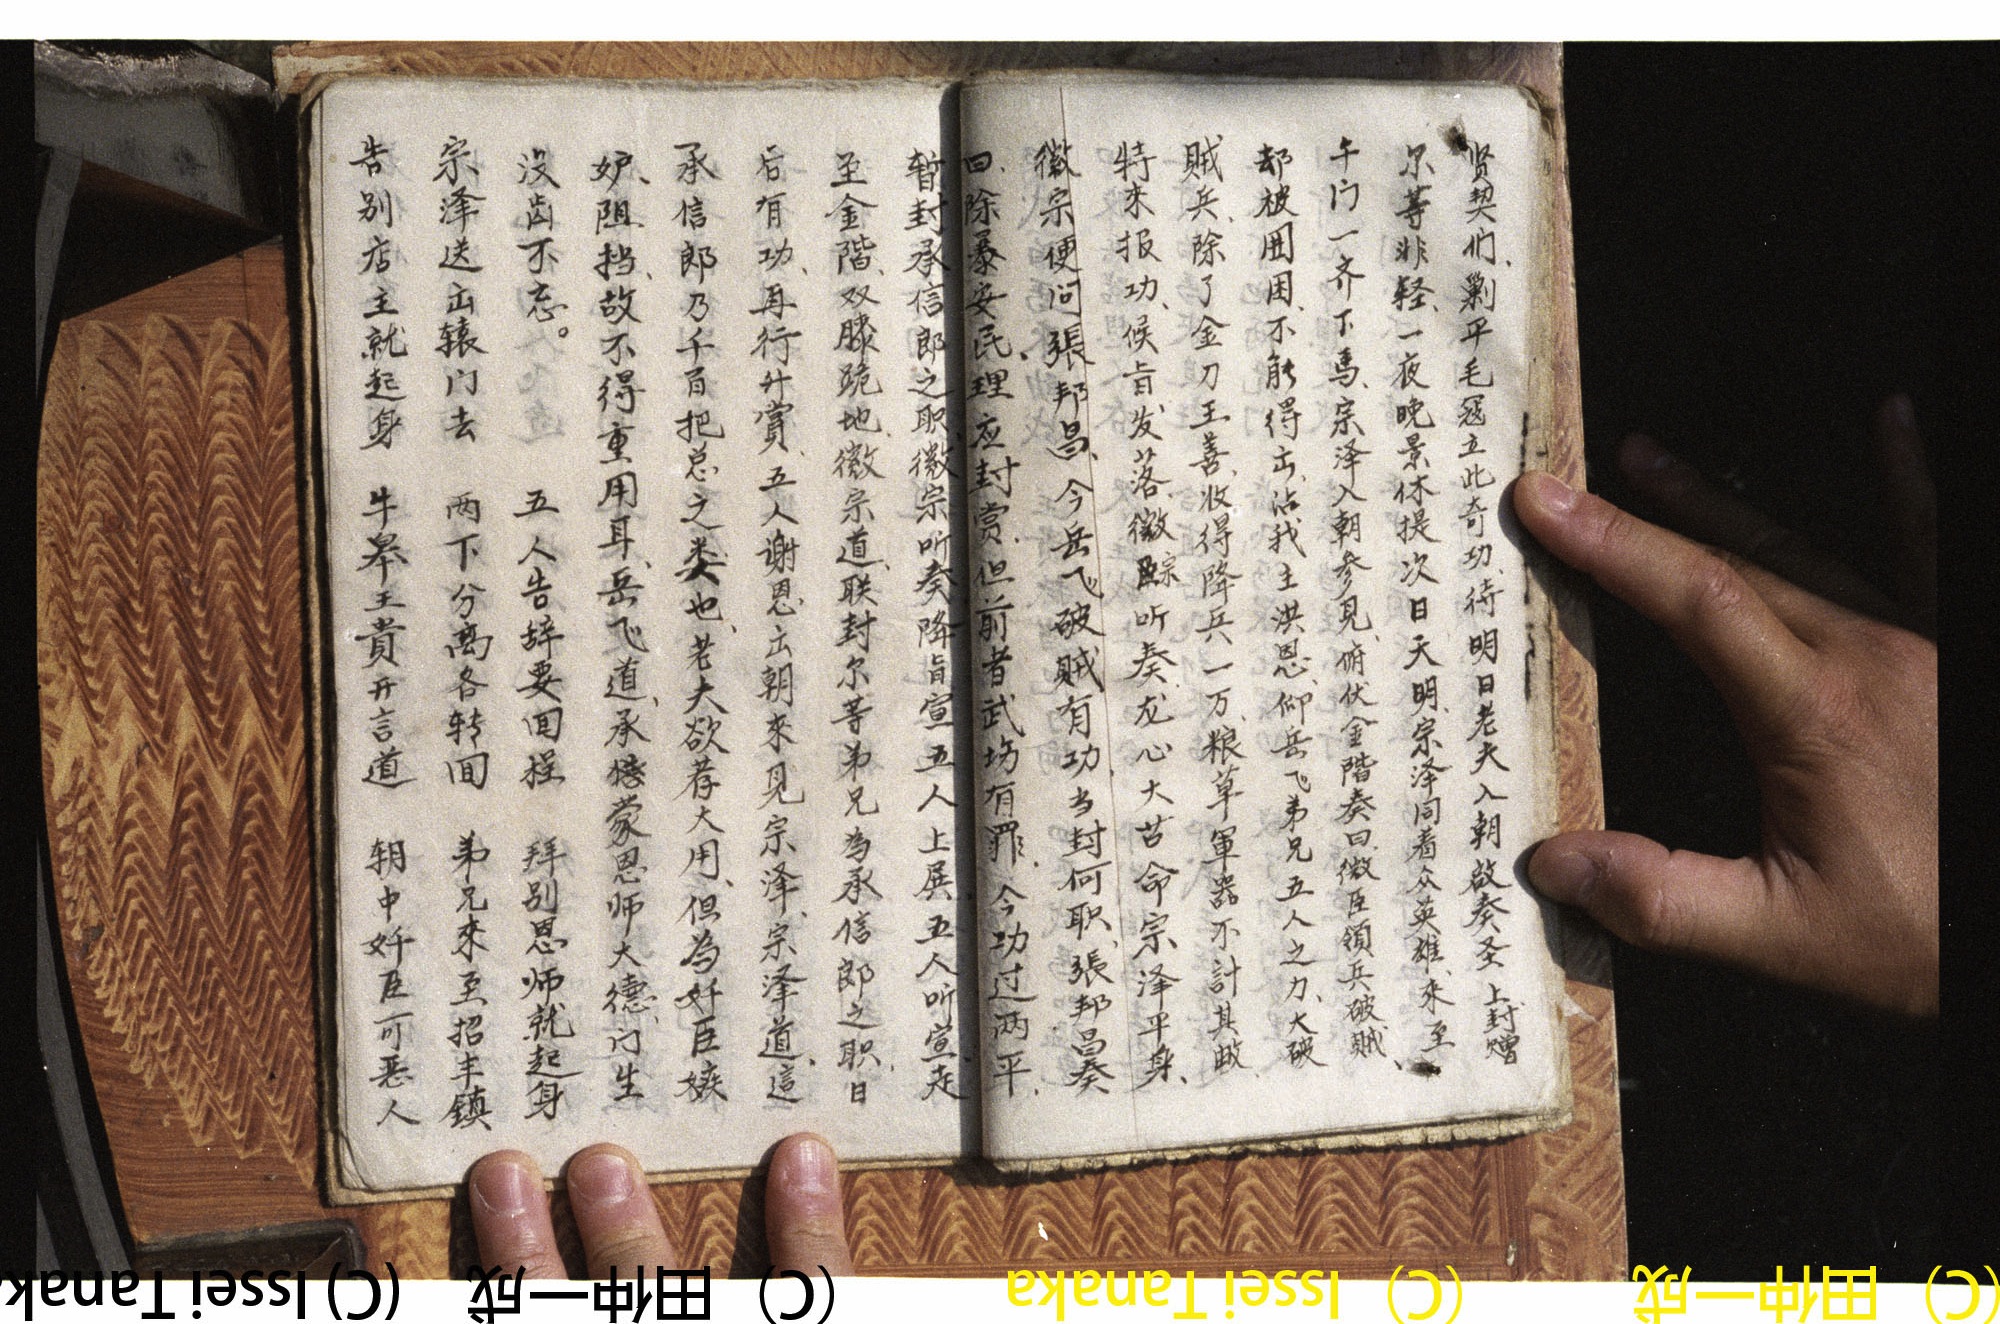 贤契们、剿平毛寇立此奇功、待明日老夫入朝啟奏圣上封赠
尔等非轻、一夜晚景休提次日天明、宗泽同着众英雄、來至
午门一齐下馬、宗泽入朝参見、俯伏金階奏曰、微臣領兵破賊、
却被困困、不能得出、沾我主洪恩、仰岳飞弟兄五人之力、大破
賊兵、除了金刀王善、收得降兵一万、粮草軍器不計其数
特來报功、候旨发落、徽宗听奏、龙心大喜命宗泽平身、
徽宗便问張邦昌、今岳飞破賊有功、当封何职、張邦昌奏
曰、除暴安民、理应封赏、但前者武场有罪、今功过两平、
暫封承信郎之职、徽宗听奏、降旨宣五人上殿、五人听宣走
至金階、双膝跪地、徽宗道、联封尔等弟兄為承信郎之职、日
后有功、再行升賞、五人谢恩、出朝來見宗泽、宗泽道、這
承信郎乃千百把总之类也、老夫欲荐大用、但為奸臣嫉
妒、阻挡、故不得重用耳、岳飞道、承蒙恩师大德、门生
没齿不忘。 五人告辞要回程 拜别恩师就起身
宗泽送出辕门去 两下分离各转回 弟兄來至招丰鎮
告别店主就起身 牛皋王貴开言道 朝中奸臣可恶人
(C) Issei Tanaka
(C) 田仲一成
(C) Issei Tanaka
(C) 田仲一成